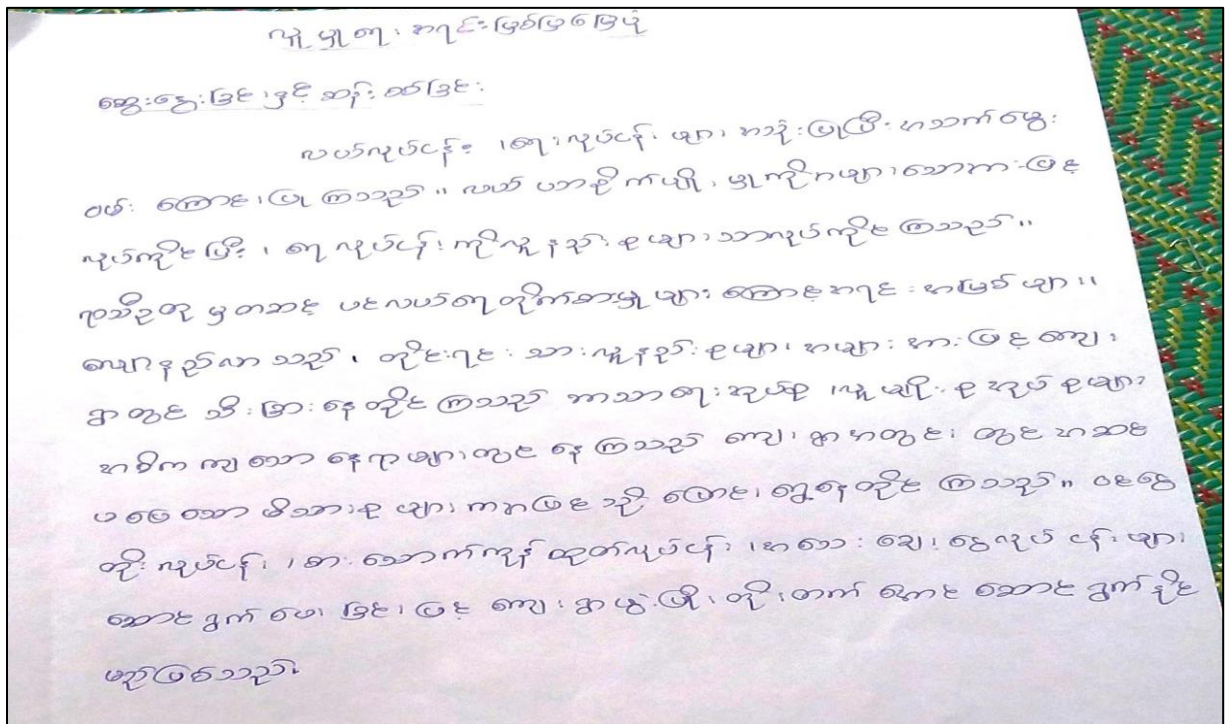 လူမှုရေးအရင်းဖြစ်ဖြစ်မြေပုံ
ဆွေးနွေးခြင်းနှင့် ဆန်းစစ်ခြင်း
လယ်လုပ်ငန်း ၊ရေးလုပ်ငန်းများ အသုံးပြုပြီး အသက်မွေး
ဝမ်းကြောင်းပြုကြသည်။ လယ် ပဘာစိုက်ပျိုးမှုကိုကများသောကားဖြင့်
လုပ်ကိုင်ပြီး ၊ ရေလုပ်ငန်းကိုလူနည်းစုများသာလုပ်ကိုင်ကြသည်။
ရာသီဥတု မှတဆင့် ပင်လယ်ရေတိုက်စားမှုများကြောင့်အရင်းအမြစ်များ
လျော့နည်လာသည်၊ တိုင်းရင်းသားလူနည်းစုများအများအားဖြင့်ကျေး
ရွာတွင် သီးခြားနေထိုင်ကြသည် ဘာသာရေးအုပ်စု ၊လူမျိုးစုအုပ်စုများ
အဓိကကျသောနေရာများတွင်နေကြသည် ကျေးရွာအတွင်းတွင်အဆင်
မပြေသောမိသားစုများကအပြင်သို့ပြောင်းရွှေ့နေထိုင်ကြသည်။ ဝင်ငွေ
တိုးလုပ်ငန်း၊စားသောက်ကုန်ထုတ်လုပ်ငန်း၊အသေးချေးငွေလုပ်ငန်းများ
ဆောင်ရွက်ပေးခြင်းဖြင့်ကျေးရွာဖွံ့ဖြိုးတိုးတက်အောင်ဆောင်ရွက်နိုင်
မည်ဖြစ်သည်။